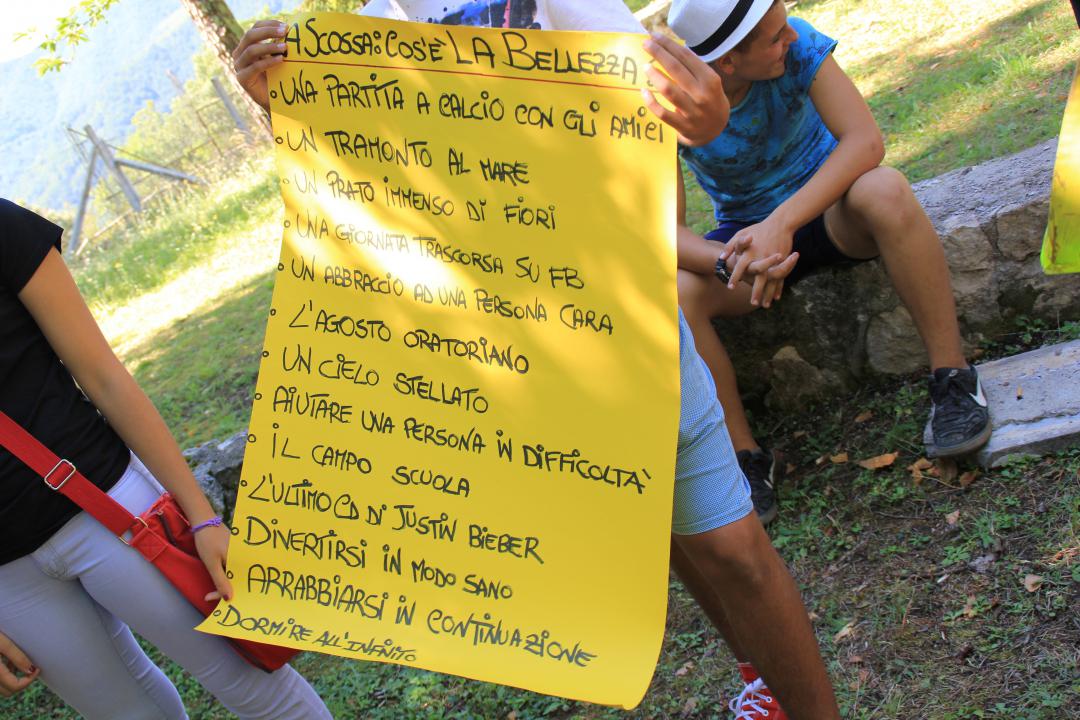 A SCOSSA: COS'È LA BELLEZZA
• UNA PARTITA A CALCIO CON GLI AMICI
• UN TRAMONTO AL MARE
• UN PRATO IMMENSO DI FIORI
• UNA GIORNATA TRASCORSA SU FB
• UN ABBRACCIO AD UNA PERSONA CARA
• L'AGOSTO ORATORIANO
• UN CIELO STELLATO
• AIUTARE UNA PERSONA IN DIFFICOLTA'
• IL CAMPO SCUOLA
• L'ULTIMO CD DI JUSTIN BIEBER
• DIVERTIRSI IN MODO SANO
• ARRABBIARSI IN CONTINUAZIONE
• DORMIRE ALL'INFINITO